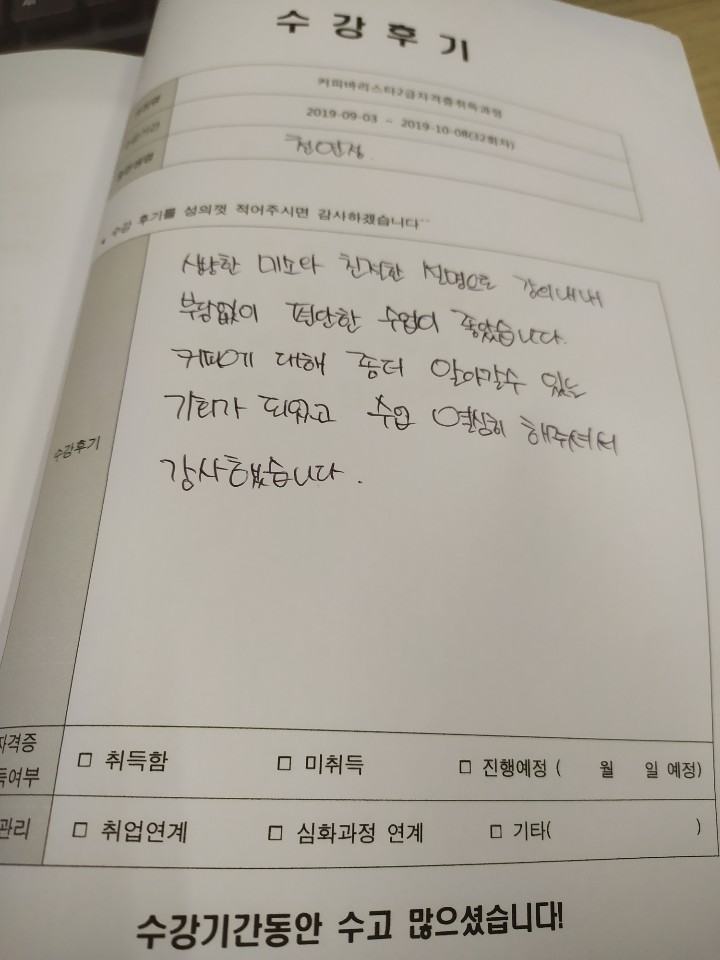 수강후기
커피바리스타2급자격증취득과정
2019-09-03 ~ 2019-10-08(32회차)
* 수강 후기를 성의껏 적어주시면 감사하겠습니다^^
상냥한 미소와 친절한 설명으로 강의내내
부담없이 편안한 수업이 좋았습니다.
커피에 대해 좀더 알아갈수 있는
기회가 되었고 수업 열심히 해주셔서
수강후기
감사했습니다.
자격증
득여부
□ 취득함 □ 미취득 □ 진행예정 ( 월 일 예정)
관리 □ 취업연계 □ 심화과정 연계 □ 기타( )
수강기간동안 수고 많으셨습니다!